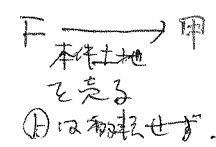 F → 甲
本件土地
を売る
㊤は移転せず.